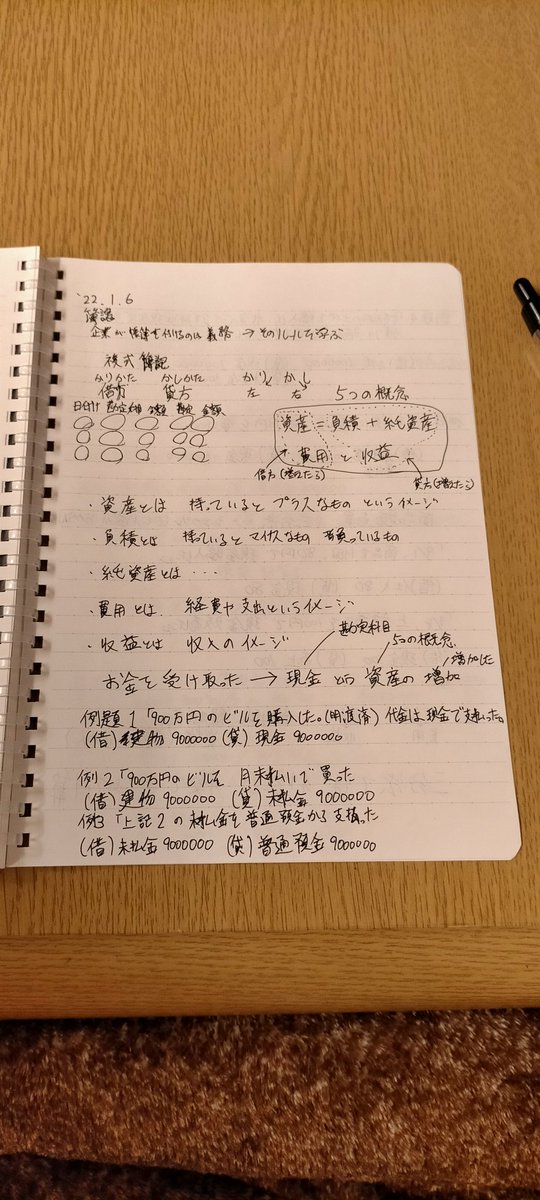 '22.1.6
簿記
企業が帳簿を付けるのは義務 → そのルールを学ぶ
複式簿記
かりかた かしかた かり かし
借方 貸方 左 右 5つの概念
日付け 勘定科目 金額 勘定 金額
資産=負積+純資産
費用 と 収益
借方(増えたら)
貸方(増えたら)
・資産とは 持っていると プラスなもの というイメージ
・負積とは 持っていると マイナスなもの 背負っているもの
・純資産とは・・・
・費用とは 経費や支出というイメージ
・収益とは 収入のイメージ
勘定科目
5つの概念
増加した
お金を受け取った → 現金 という 資産の 増加
例題1「900万円のビルを購入した。(引渡済) 代金は現金で支払った。
(借)建物 9000000 (貸)現金 9000000
例2「900万円のビルを 月末払いで買った
(借)建物 9000000 (貸)未払金 9000000
例3「上記2の未払金を普通預金から支払った
(借)未払金 9000000 (貸)普通預金 9000000